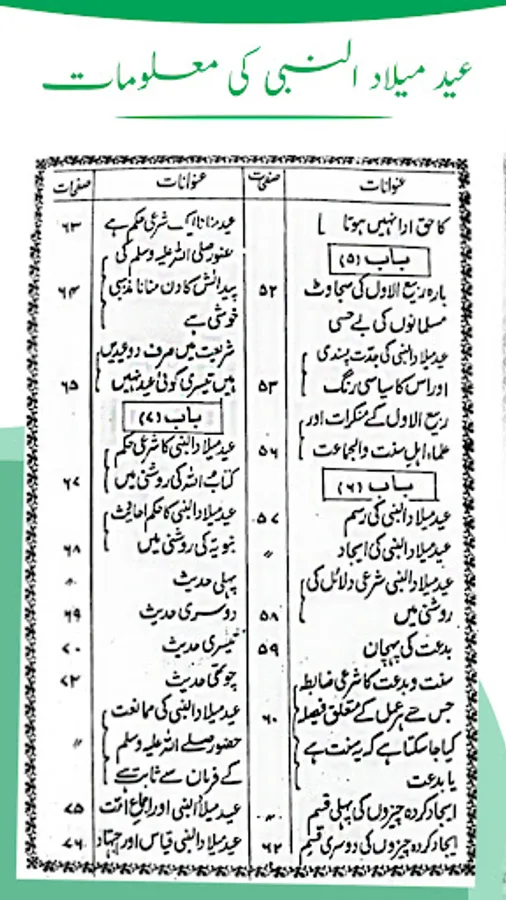 عید میلاد النبی کی معلومات
عنوانات
صفحات
کا حق ادا نہیں ہوتا
باب (۵)
بارہ ربیع الاول کی سجاوٹ
۵۲
مسلمانوں کی بے حسی
عید میلاد النبی کی جدت پسندی
اور اس کا سیاسی رنگ
۵۳
ربیع الاول کے منکرات اور
علماء اہل سنت والجماعت
۵۶
باب (۶)
عید میلاد النبی کی رسم
۵۷
عید میلاد النبی کی ایجاد
〃
عید میلاد النبی شرعی دلائل کی
روشنی میں
۵۸
بدعت کی پہچان
۵۹
سنت و بدعت کا شرعی ضابطہ
جس سے ہر عمل کے متعلق فیصلہ
۶۰
کیا جا سکتا ہے کہ یہ سنت ہے
یا بدعت
ایجاد کردہ چیزوں کی پہلی قسم
〃
ایجاد کردہ چیزوں کی دوسری قسم
۶۲
عنوانات
صفحات
عید منانا ایک شرعی حکم ہے
۶۳
حضور صلی اللہ علیہ وسلم کی
پیدائش کا دن منانا مذہبی
۶۴
خوشی ہے
شریعت میں صرف دو عیدیں
ہیں تیسری کوئی عید نہیں
۶۵
باب (۷)
عید میلاد النبی کا شرعی حکم
کتاب اللہ کی روشنی میں
۶۷
عید میلاد النبی کا حکم احادیث
نبویہ کی روشنی میں
۶۸
پہلی حدیث
〃
دوسری حدیث
۶۹
تیسری حدیث
۷۰
چوتھی حدیث
۷۲
عید میلاد النبی کی ممانعت
حضور صلے اللہ علیہ وسلم
〃
کے فرمان سے ثابت ہے
عید میلاد النبی اور اجماع امت
۷۵
عید میلاد النبی قیاس اور اجتہاد
۷۶